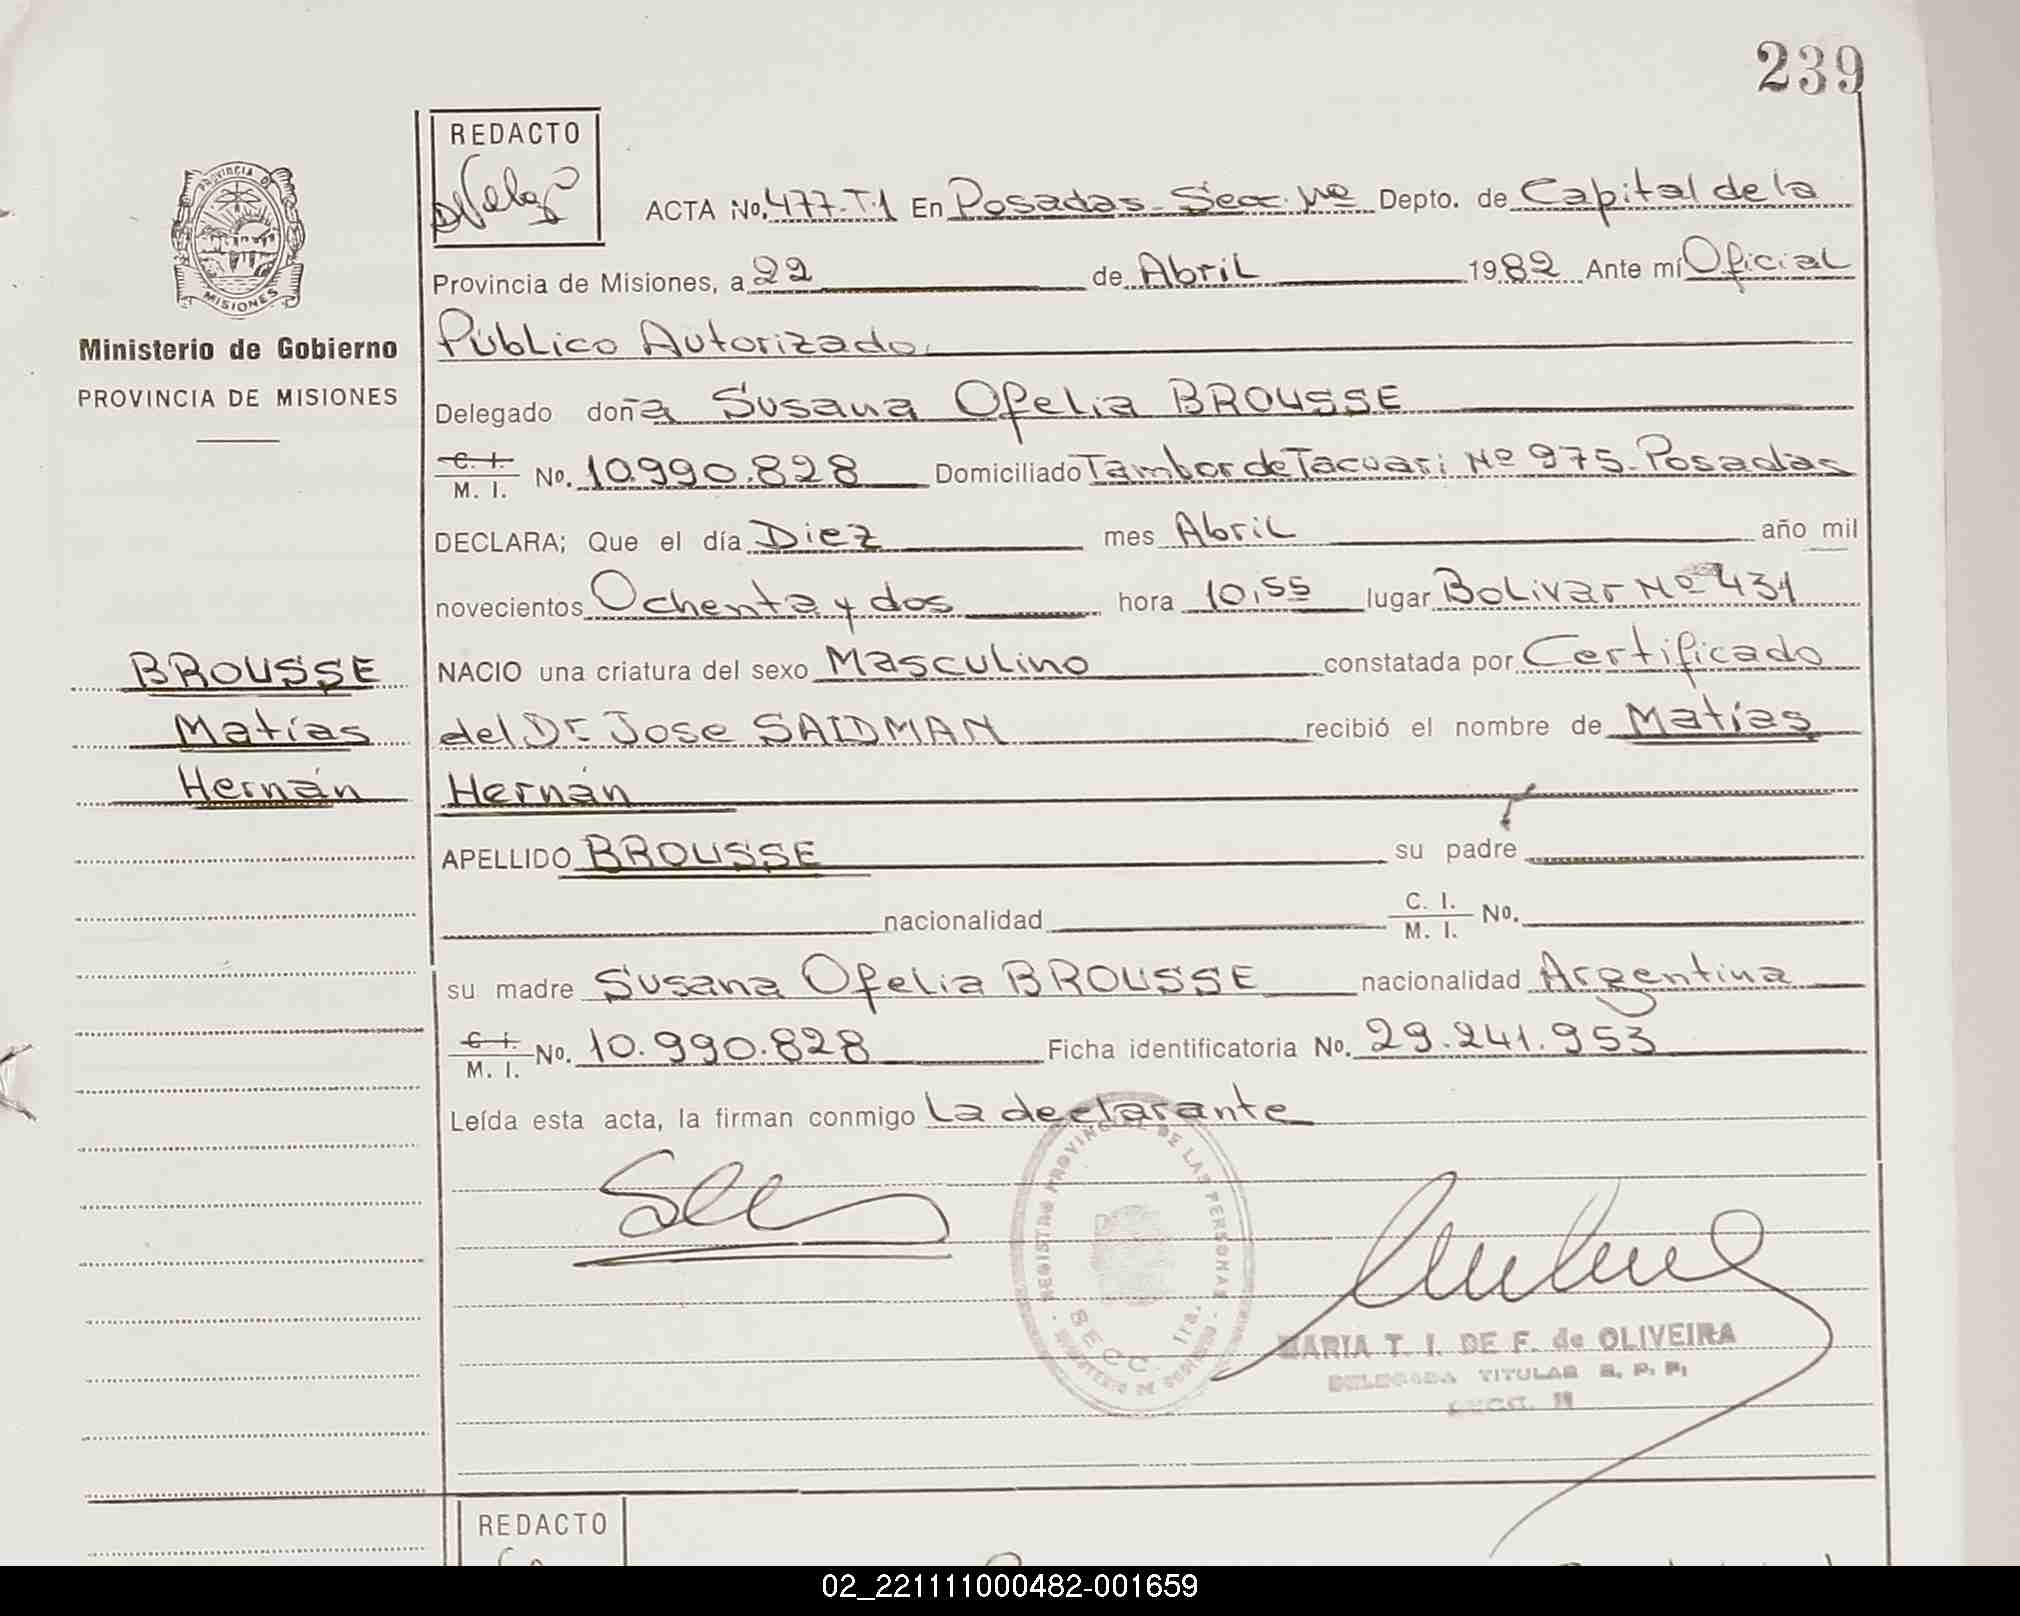 239
REDACTO
PROVINCIA DE
MISIONES
ACTA No. 477-T.1 En Posadas- Secc. 1ra Depto. de Capital de la
Provincia de Misiones, a 22 de Abril 1982 Ante mí Oficial
Ministerio de Gobierno
Público Autorizado.
PROVINCIA DE MISIONES
Delegado doña Susana Ofelia BROUSSE
C. I.
M. I. No. 10.990.828 Domiciliado Tambor de Tacuari Nº 975. Posadas
DECLARA; Que el día Diez mes Abril año mil
novecientos Ochenta y dos hora 10,55 lugar Bolivar Nº 431
BROUSSE
NACIO una criatura del sexo Masculino constatada por Certificado
Matías
del Dr. Jose SAIDMAN recibió el nombre de Matías
Hernán
Hernán
APELLIDO BROUSSE su padre
nacionalidad C. I.
M. I. No.
su madre Susana Ofelia BROUSSE nacionalidad Argentina
C. I.
M. I. No. 10.990.828 Ficha identificatoria No. 29.241.953
Leída esta acta, la firman conmigo La declarante
REGISTRO PROVINCIAL DE LAS PERSONAS
SECC. 1ra.
MINISTERIO DE GOBIERNO
MARIA T. I. DE F. de OLIVEIRA
DELEGADA TITULAR R. P. P.
REDACTO
02_221111000482-001659